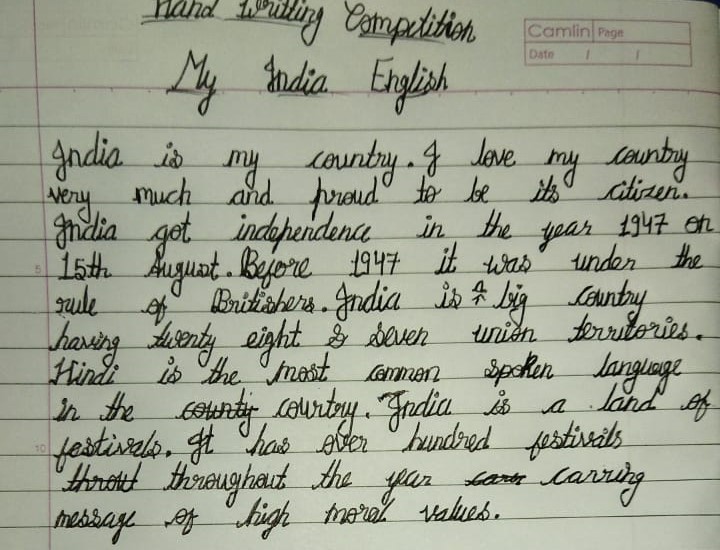 Hand Writting Competition
Camlin Page
Date / /
My India English
India is my country. I love my country
very much and proud to be its citizen.
India got independence in the year 1947 on
5 15th August. Before 1947 it was under the
rule of Britishers. India is a big country
having twenty eight & seven union territories.
Hindi is the most common spoken language
in the county courtry. India is a land of
10 festivals. It has over hundred festivals
throut throughout the year carring
message of high moral values.